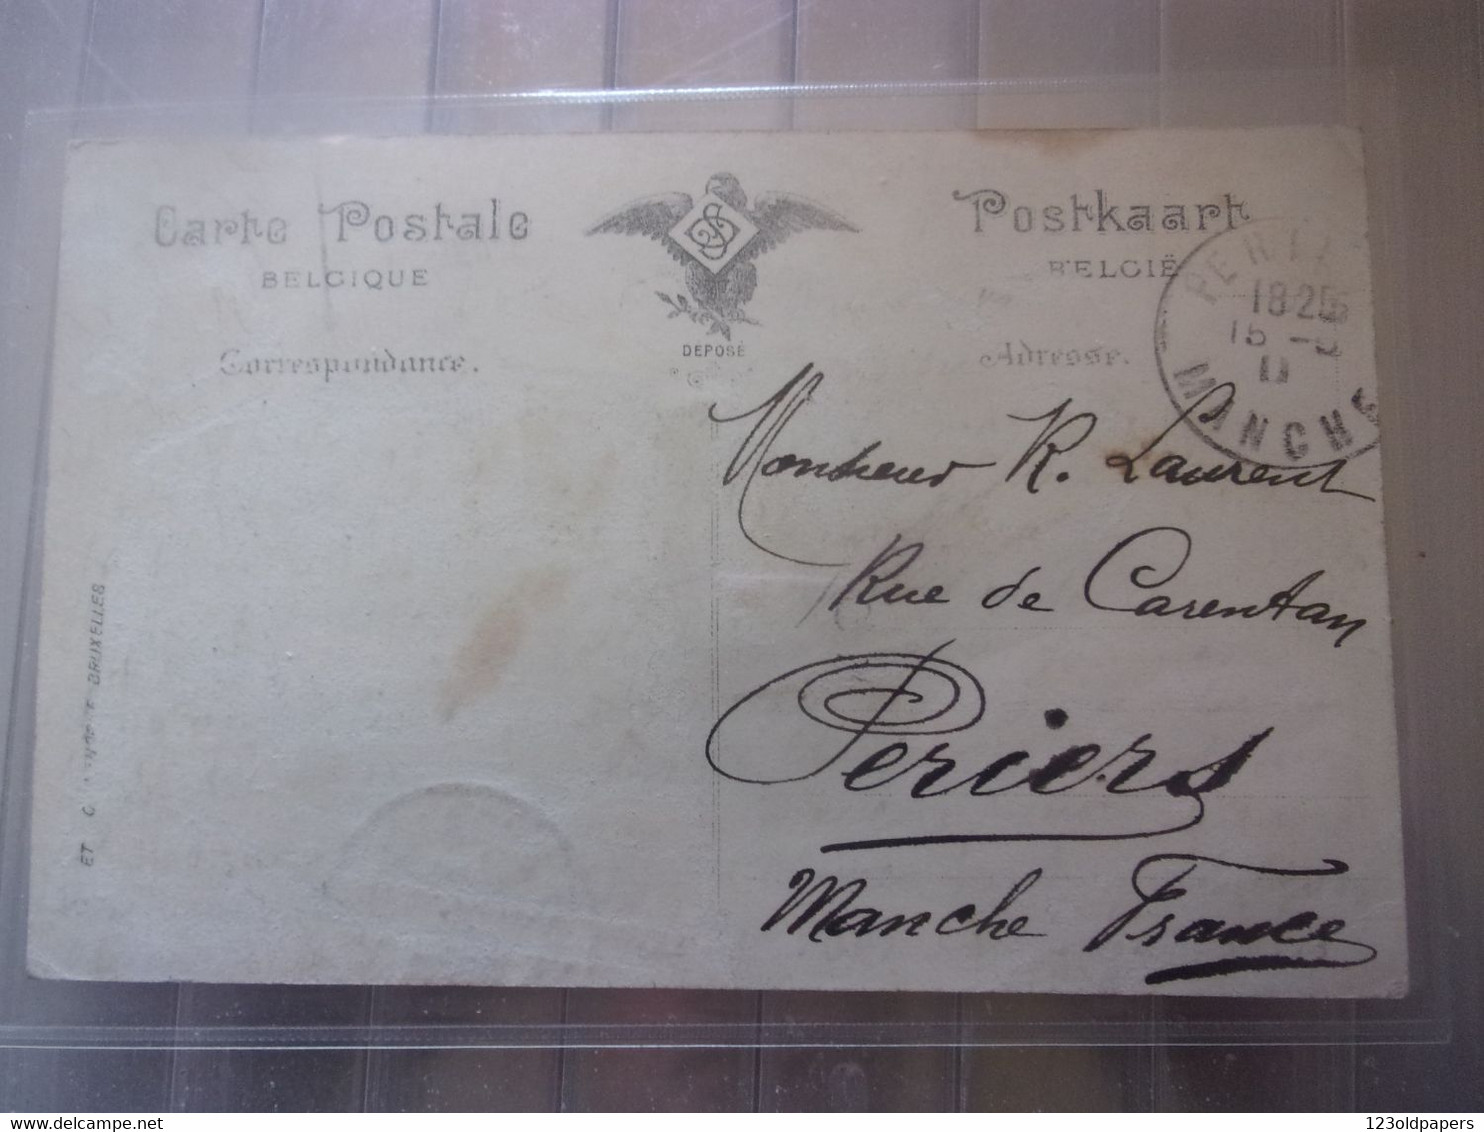 Carte Postale
BELGIQUE
Correspondance.
DEPOSÉ
Postkaart
BELGIË
Adresse.
18 25
MANCHE
Monsieur R. Laurent
Rue de Carentan
Periers
Manche France
ET
BRUXELLES
delcampe.net
123oldpapers